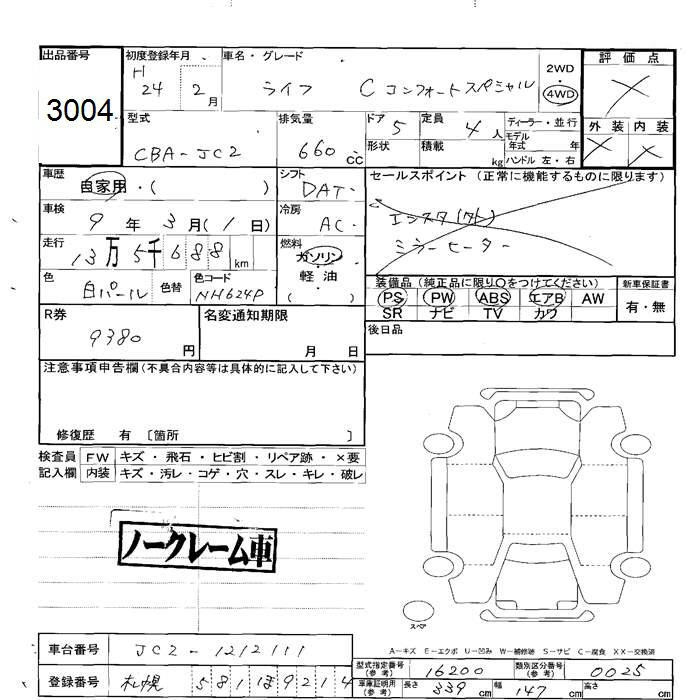 出品番号 初度登録年月 車名・グレード 評価点
H 24 2月 ライフ C コンフォートスペシャル 2WD・4WD
3004
型式 排気量 ドア 5 定員 4人 ディーラー・並行 外装 内装
モデル年式 年
CBA-JC2 660cc 形状 積載 kg ハンドル 左・右
車歴 自家用・( ) シフト DAT セールスポイント (正常に機能するものに限ります)
車検 9年 3月( 1日) 冷房 AC エンスタ(ケト)
走行 13万5千688km 燃料 ガソリン・軽油 ( ) ミラーヒーター
色 白パール 色替 色コード NH624P 装備品 (純正品に限り○をつけてください) 新車保証書
PS PW ABS エアB AW 有・無
SR ナビ TV カワ
R券 9380円 名変通知期限 月 日 後日品
注意事項申告欄(不具合内容等は具体的に記入して下さい)
修復歴 有 〔箇所 〕
検査員 FW キズ・飛石・ヒビ割・リペア跡・×要
記入欄 内装 キズ・汚レ・コゲ・穴・スレ・キレ・破レ
ノークレーム車
スペア
A－キズ E－エクボ U－凹み W－補修跡 S－サビ C－腐食 XX－交換済
車台番号 JC2-1212111 型式指定番号(参考) 16200 類別区分番号(参考) 0025
登録番号 札幌 581 ほ 9214 車庫証明用(参考) 長さ 339cm 幅 147cm 高さ cm